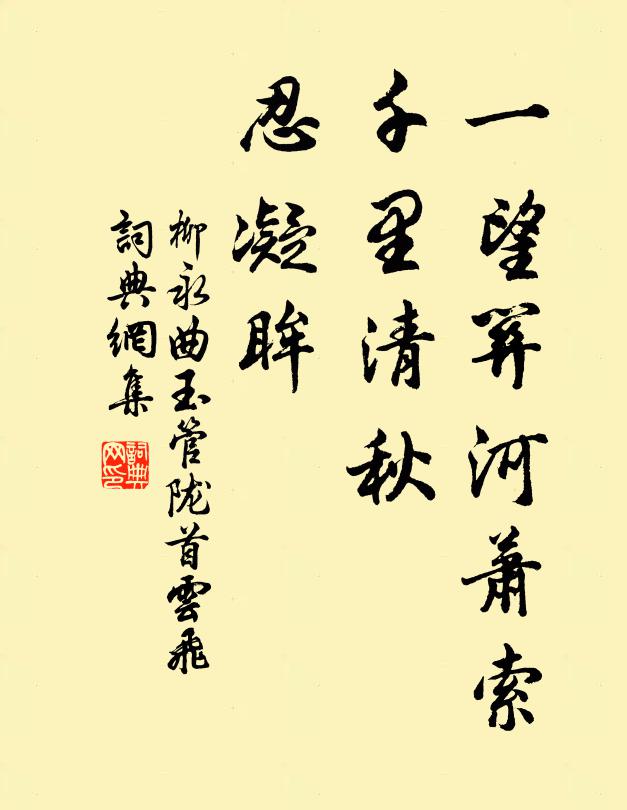 一望關河蕭索
千里清秋
忍凝眸
柳永曲玉管陇首雲飛
詞典網集
詞典網印